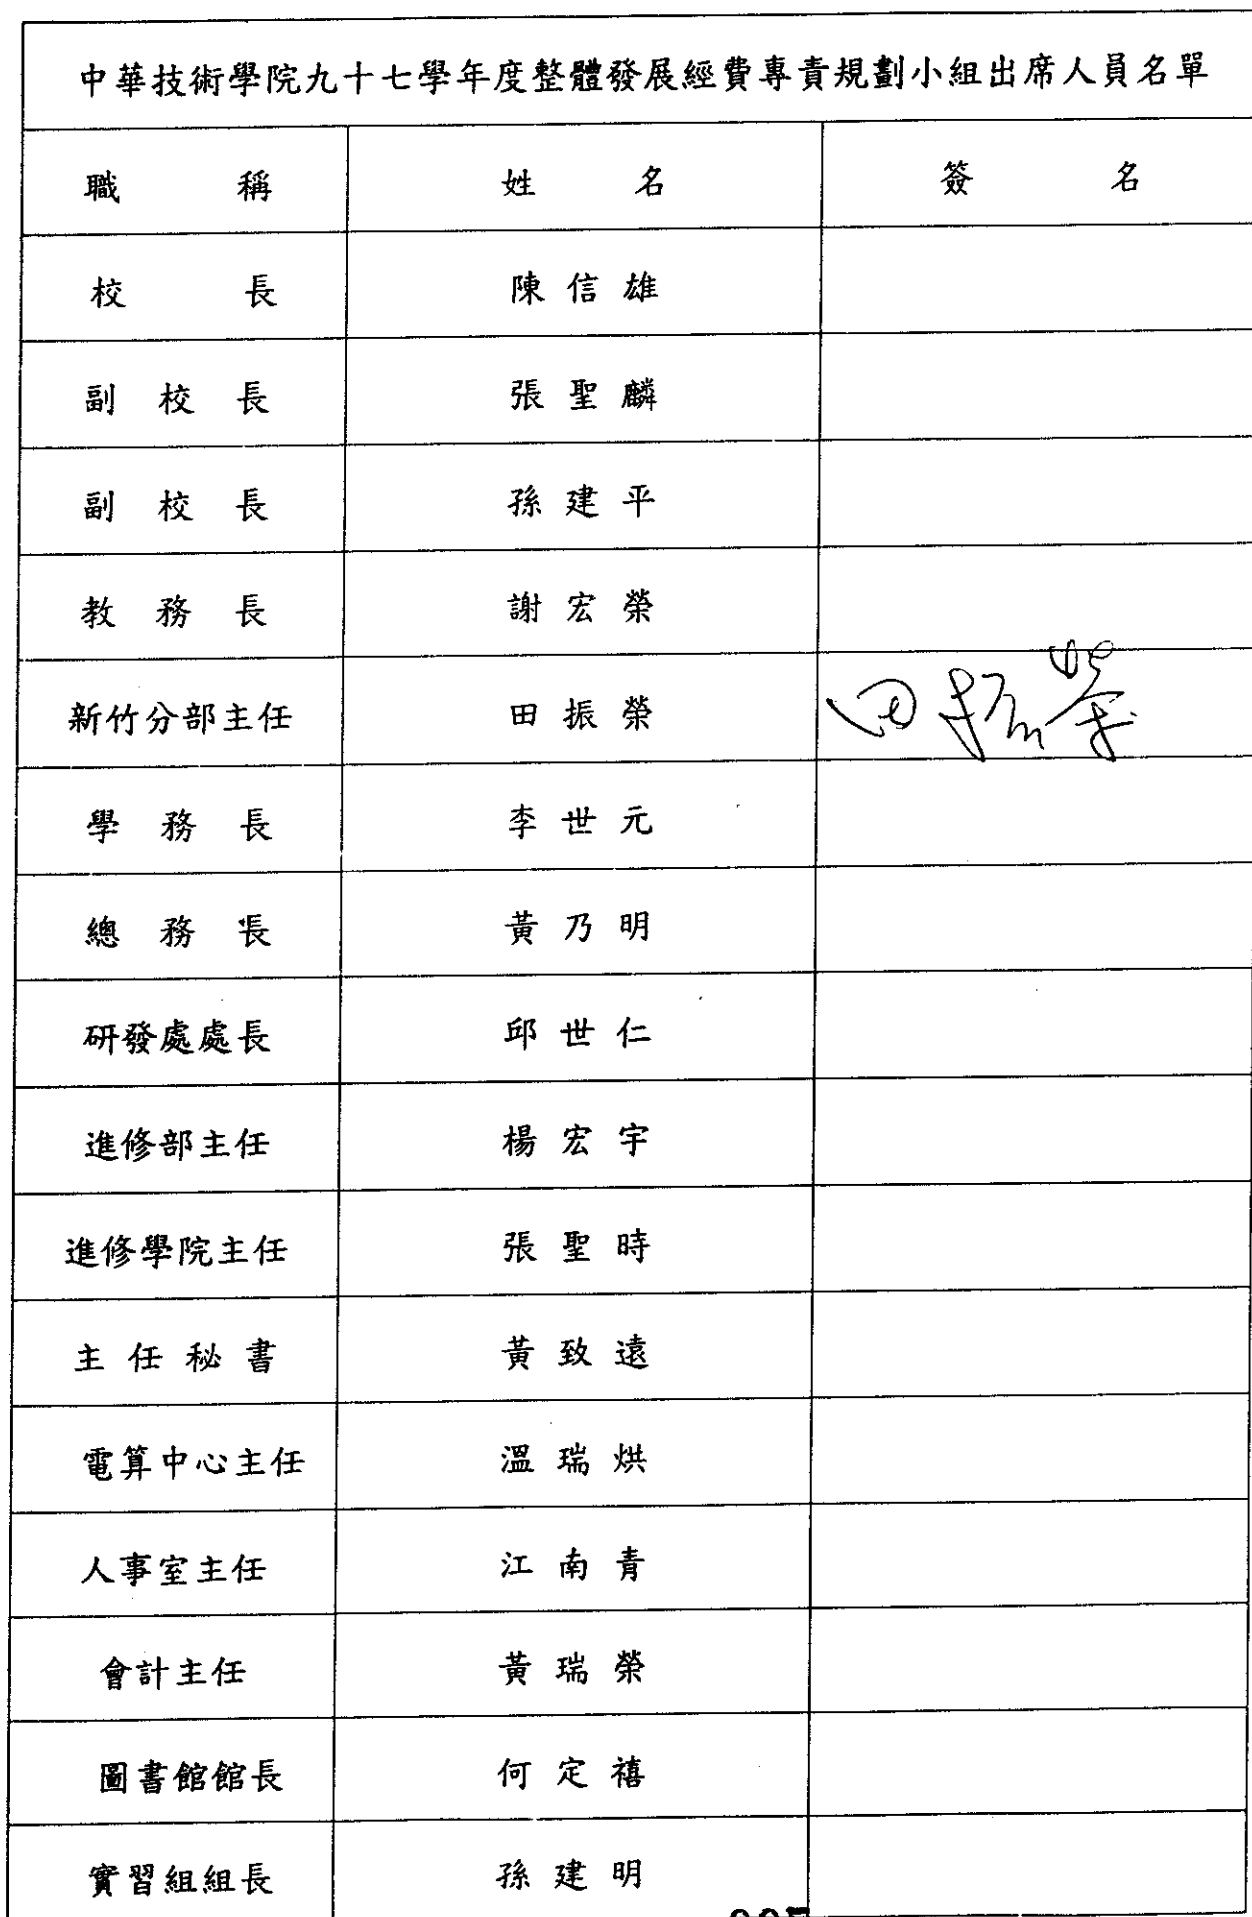 中華技術學院九十七學年度整體發展經費專責規劃小組出席人員名單
職稱 姓名 簽名
校長 陳信雄
副校長 張聖麟
副校長 孫建平
教務長 謝宏榮
新竹分部主任 田振榮 田振榮
學務長 李世元
總務長 黃乃明
研發處處長 邱世仁
進修部主任 楊宏宇
進修學院主任 張聖時
主任秘書 黃致遠
電算中心主任 溫瑞烘
人事室主任 江南青
會計主任 黃瑞榮
圖書館館長 何定禧
實習組組長 孫建明